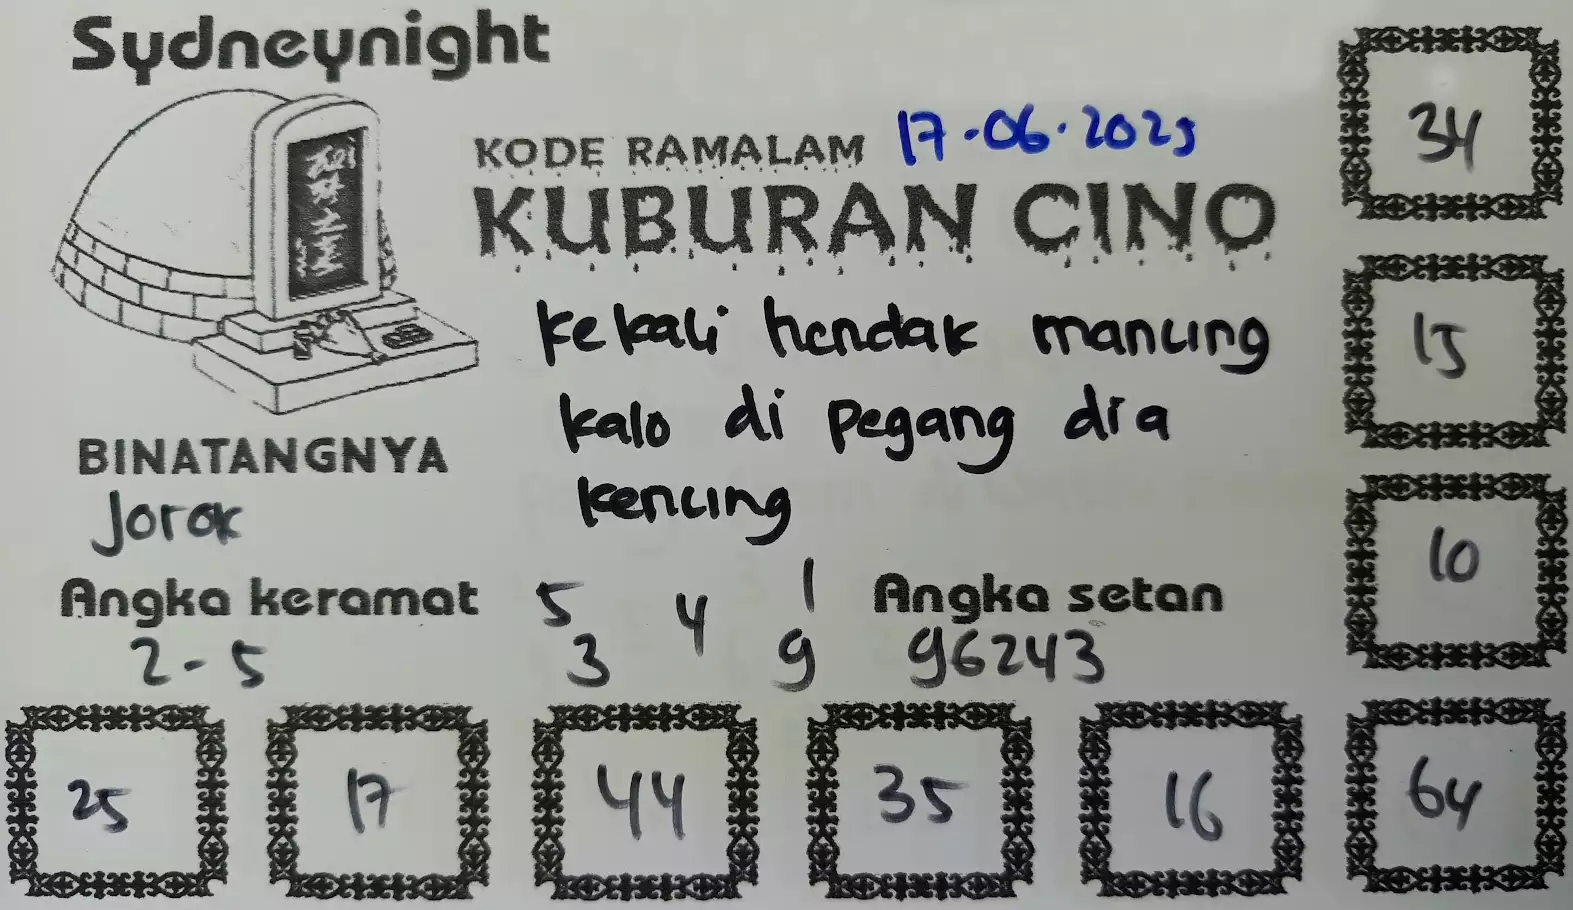 Sydneynight
KODE RAMALAM 17-06-2025
KUBURAN CINO
kekali hendak mancing
kalo di pegang dia
kencing
BINATANGNYA
Jorok
Angka keramat
2-5
5 4 1
3 9
Angka setan
96243
34
15
10
64
25 17 44 35 16